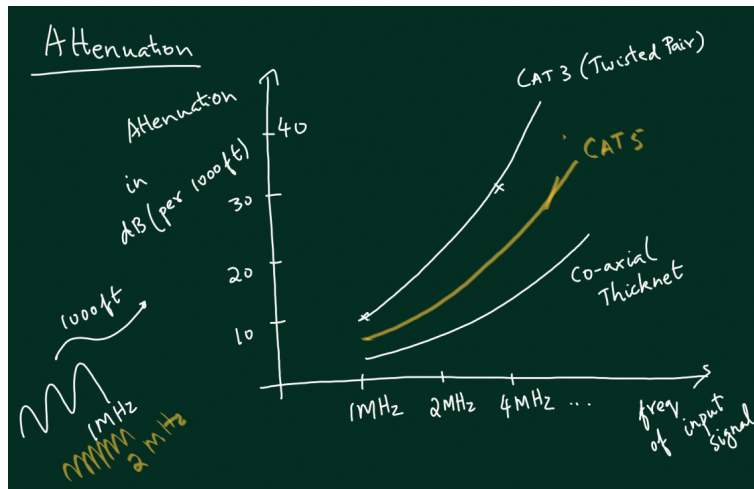 Attenuation
Attenuation
in
dB (per 1000ft)
40
30
20
10
CAT 3 (Twisted Pair)
CAT5
Co-axial
Thicknet
1MHz 2MHz 4MHz ...
freq
of input
signal
1000ft
1MHz
2 MHz